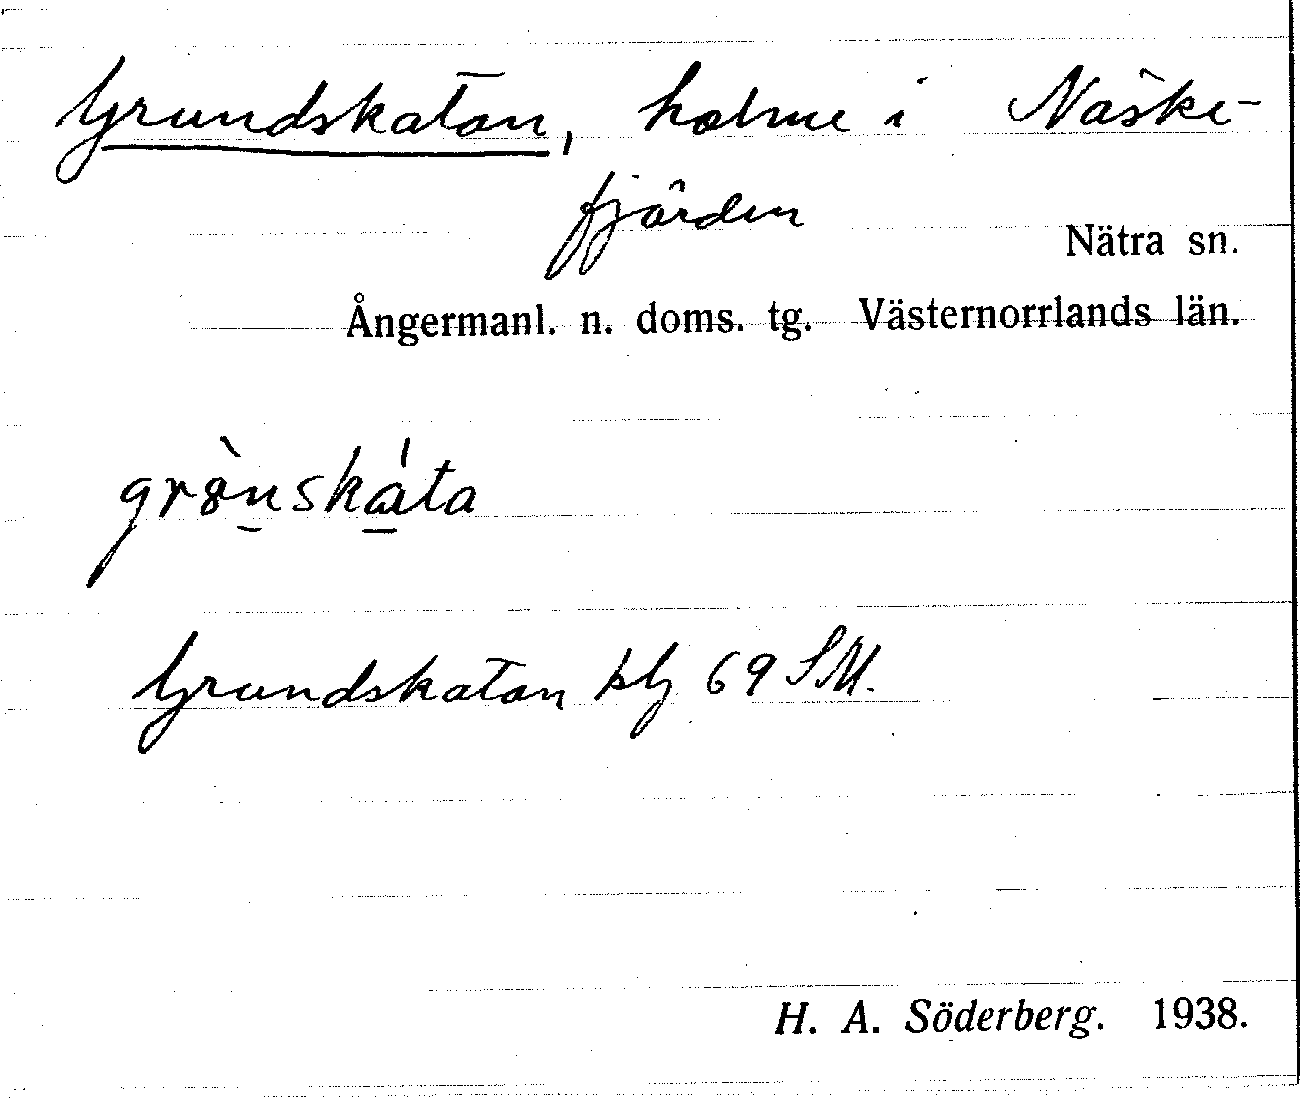 Grundskatan, holme i Näske-
fjärden
Nätra sn.
Ångermanl. n. doms. tg. Västernorrlands län.
grò̱nská̱ta
Grundskatan blz 69 SM.
H. A. Söderberg. 1938.